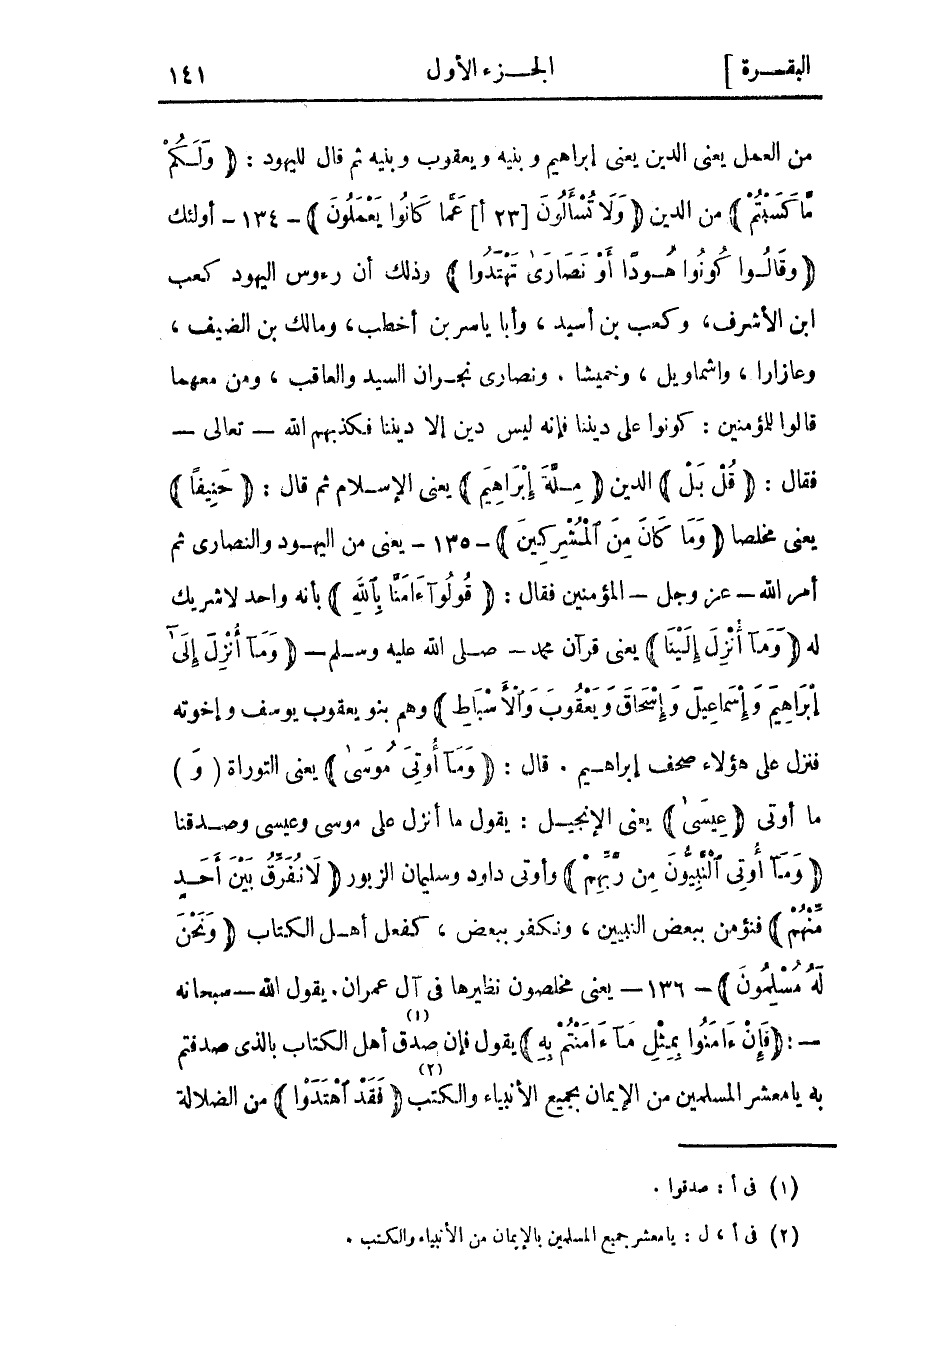 البقرة ] الجزء الأول ١٤١
من العمل يعنى الدين يعنى إبراهيم وبنيه ويعقوب وبنيه ثم قال لليهود : ﴿ وَلَكُمْ
مَّا كَسَبْتُمْ ﴾ من الدين ﴿ وَلَا تُسْأَلُونَ [٢٣ أ] عَمَّا كَانُوا يَعْمَلُونَ ﴾ - ١٣٤ - أولئك
﴿ وقَالُوا كُونُوا هُودًا أَوْ نَصَارَىٰ تَهْتَدُوا ﴾ رذلك أن رءوس اليهود كعب
ابن الأشرف، وكعب بن أسيد ، وأبا ياسر بن أخطب، ومالك بن الضيف ،
وعازارا ، واشماويل ، وخميشا . ونصارى نجران السيد والعاقب ، ومن معهما
قالوا للؤمنين : كونوا على ديننا فإنه ليس دين إلا ديننا فكذبهم الله — تعالى —
فقال : ﴿ قُلْ بَلْ ﴾ الدين ﴿ مِلَّةَ إِبْرَاهِيمَ ﴾ يعنى الإسلام ثم قال : ﴿ حَنِيفًا ﴾
يعنى مخلصا ﴿ وَمَا كَانَ مِنَ ٱلْمُشْرِكِينَ ﴾ - ١٣٥ - يعنى من اليهود والنصارى ثم
أمر الله — عز وجل — المؤمنين فقال : ﴿ قُولُوٓا ءَامَنَّا بِٱللَّهِ ﴾ بأنه واحد لاشريك
له ﴿ وَمَآ أُنْزِلَ إِلَيْنَا ﴾ يعنى قرآن محمد — صلى الله عليه وسلم — ﴿ وَمَآ أُنْزِلَ إِلَىٰٓ
إِبْرَاهِيمَ وَإِسْمَاعِيلَ وَإِسْحَاقَ وَيَعْقُوبَ وَٱلْأَسْبَاطِ ﴾ وهم بنو يعقوب يوسف وإخوته
فنزل على هؤلاء صحف إبراهيم . قال : ﴿ وَمَآ أُوتِىَ مُوسَىٰ ﴾ يعنى التوراة ( وَ )
ما أوتى ﴿ عِيسَىٰ ﴾ يعنى الإنجيل : يقول ما أنزل على موسى وعيسى وصدقنا
﴿ وَمَآ أُوتِى ٱلنَّبِيُّونَ مِن رَّبِّهِمْ ﴾ وأوتى داود وسليمان الزبور ﴿ لَا نُفَرِّقُ بَيْنَ أَحَدٍ
مِّنْهُمْ ﴾ فنؤمن ببعض النبيين ، ونكفر ببعض ، كفعل أهل الكتاب ﴿ وَنَحْنُ
لَهُ مُسْلِمُونَ ﴾ - ١٣٦ — يعنى مخلصون نظيرها فى آل عمران . يقول الله — سبحانه
— : ﴿ فَإِنْ ءَامَنُوا بِمِثْلِ مَآ ءَامَنْتُمْ بِهِ ﴾ يقول فإن صدق (١) أهل الكتاب بالذى صدقتم
به يامعشر المسلمين من الإيمان بجميع الأنبياء والكتب (٢) ﴿ فَقَدْ ٱهْتَدَوْا ﴾ من الضلالة
(١) فى أ : صدقوا .
(٢) فى أ ، ل : يامعشر جميع المسلمين بالإيمان من الأنبياء والكتب .